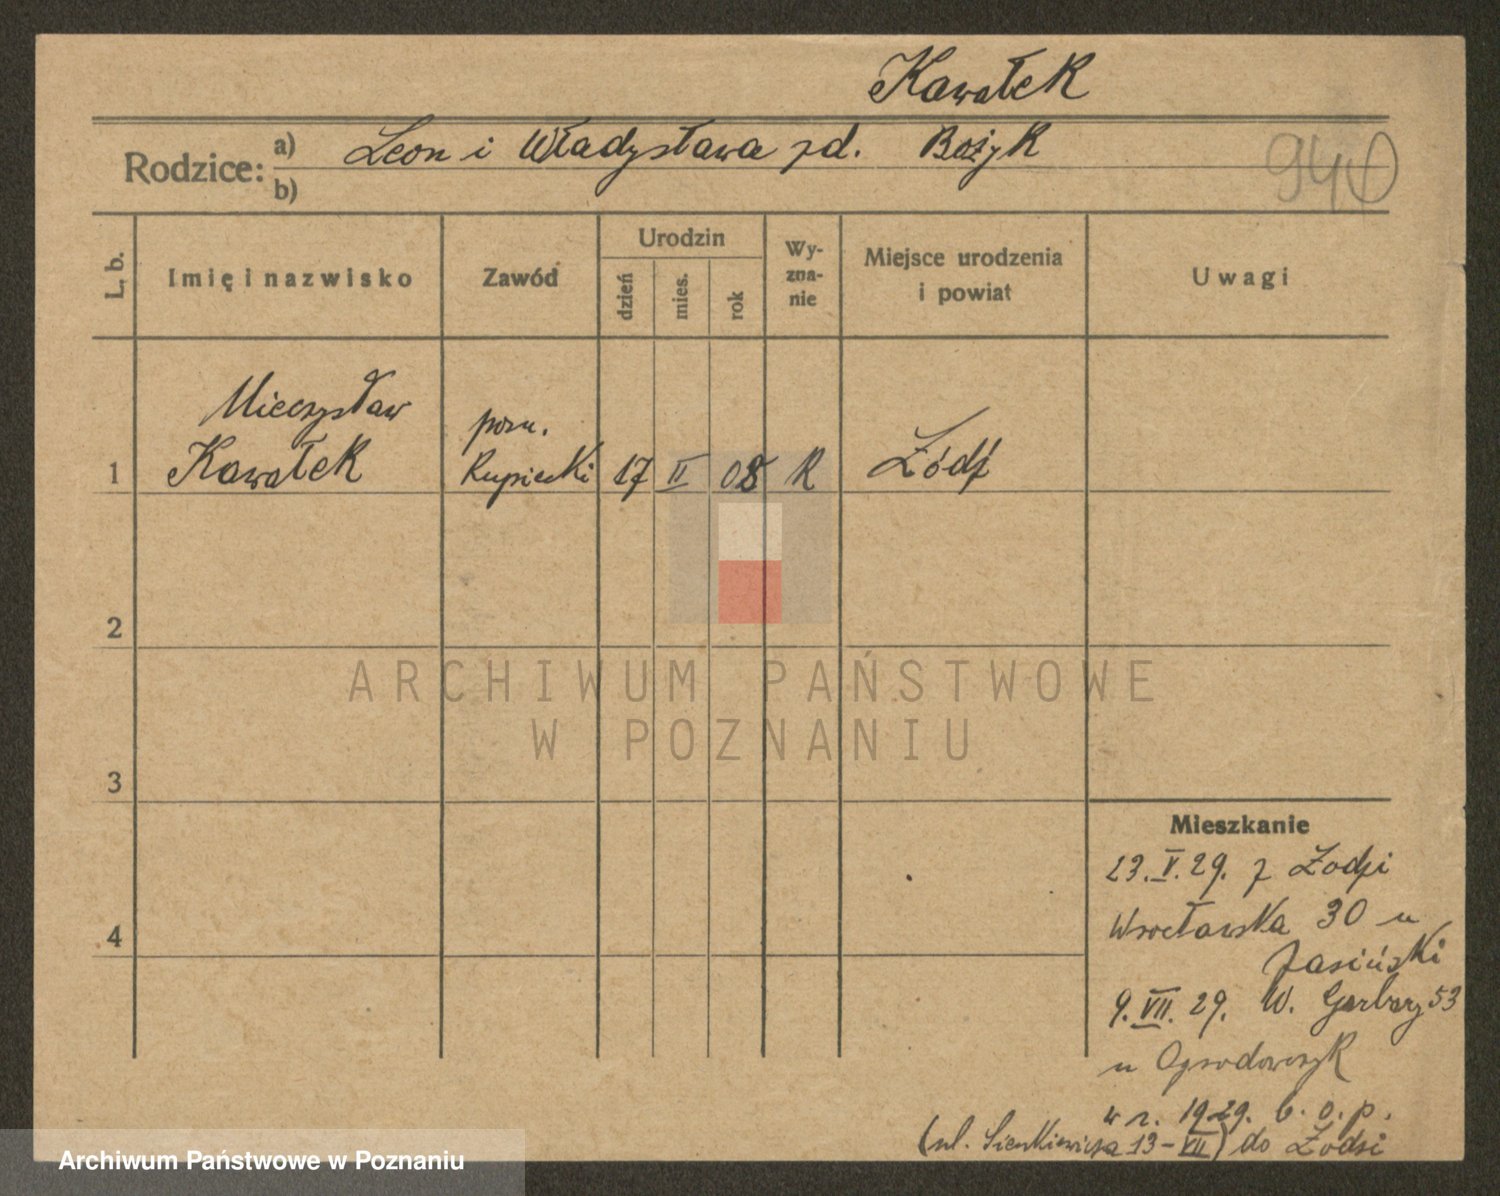 Kawałek
Rodzice: a) Leon i Władysława zd. Bożyk
b)
940
L. b.
Imię i nazwisko
Zawód
Urodzin
dzień
mies.
rok
Wy-
zna-
nie
Miejsce urodzenia
i powiat
Uwagi
Mieczysław
pom.
1 Kawałek Kupiecki 17 II 08 R Łódź
2
ARCHIWUM PAŃSTWOWE
W POZNANIU
3
Mieszkanie
23. V. 29. z Łodzi
4
Wrocławska 30 u
Jasiński
9. VII. 29. W. Garbary 53
u Ogrodowczyk
w r. 1929. b. o. p.
(ul. Sienkiewicza 13 - VII) do Łodzi
Archiwum Państwowe w Poznaniu